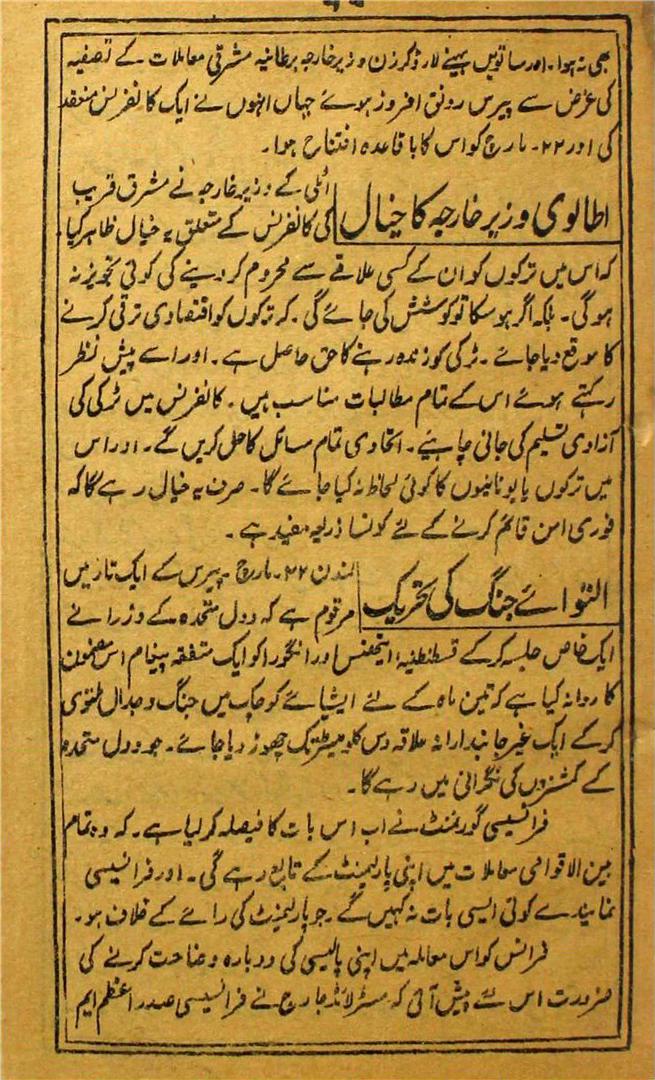 بھی نہ ہوا۔ اور ساتویں مہینے لارڈ کرزن وزیر خارجہ برطانیہ مشرقی معاملات کے تصفیہ
کی غرض سے پیرس رونق افروز ہوئے جہاں انہوں نے ایک کانفرنس منعقد
کی اور ۲۲۔ مارچ کو اس کا باقاعدہ افتتاح ہوا۔
اطالوی وزیر خارجہ کا خیال
اٹلی کے وزیر خارجہ نے مشرق قریب
کی کانفرنس کے متعلق یہ خیال ظاہر کیا
کہ اس میں ترکوں کو ان کے کسی علاقے سے محروم کر دینے کی کوئی تجویز نہ
ہو گی۔ بلکہ اگر ہو سکا تو کوشش کی جائے گی۔ کہ ترکوں کو اقتصادی ترقی کرنے
کا موقع دیا جائے۔ ٹرکی کو زندہ رہنے کا حق حاصل ہے۔ اور اسے پیش نظر
رکھتے ہوئے اس کے تمام مطالبات مناسب ہیں۔ کانفرنس میں ٹرکی کی
آزادی تسلیم کی جانی چاہئیے۔ اتحادی تمام مسائل کا حل کریں گے۔ اور اس
میں ترکوں یا یونانیوں کا کوئی لحاظ نہ کیا جائے گا۔ صرف یہ خیال رہے گا کہ
فوری امن قائم کرنے کے لئے کونسا ذریعہ مفید ہے۔
التوائے جنگ کی تحریک
لندن ۲۶۔ مارچ۔ پیرس کے ایک تار میں
مرقوم ہے کہ دول متحدہ کے وزرا نے
ایک خاص جلسہ کر کے قسطنطنیہ، ایتھنس اور انگورا کو ایک متفقہ پیغام اس مضمون
کا روانہ کیا ہے کہ تین ماہ کے لئے ایشیائے کوچک میں جنگ و جدال ملتوی
کر کے ایک غیر جانبدارانہ علاقہ دس کلومیٹر تک چھوڑ دیا جائے۔ جو دول متحدہ
کے کمشنروں کی نگرانی میں رہے گا۔
فرانسیسی گورنمنٹ نے اب اس بات کا فیصلہ کر لیا ہے۔ کہ وہ تمام
بین الاقوامی معاملات میں اپنی پارلیمنٹ کے تابع رہے گی۔ اور فرانسیسی
نمایندے کوئی ایسی بات نہ کہیں گے۔ جو پارلیمنٹ کی رائے کے خلاف ہو۔
فرانس کو اس معاملہ میں اپنی پالیسی کی دوبارہ وضاحت کرنے کی
ضرورت اس لئے پیش آئی کہ مسٹر لائڈ جارج نے فرانسیسی صدر اعظم ایم